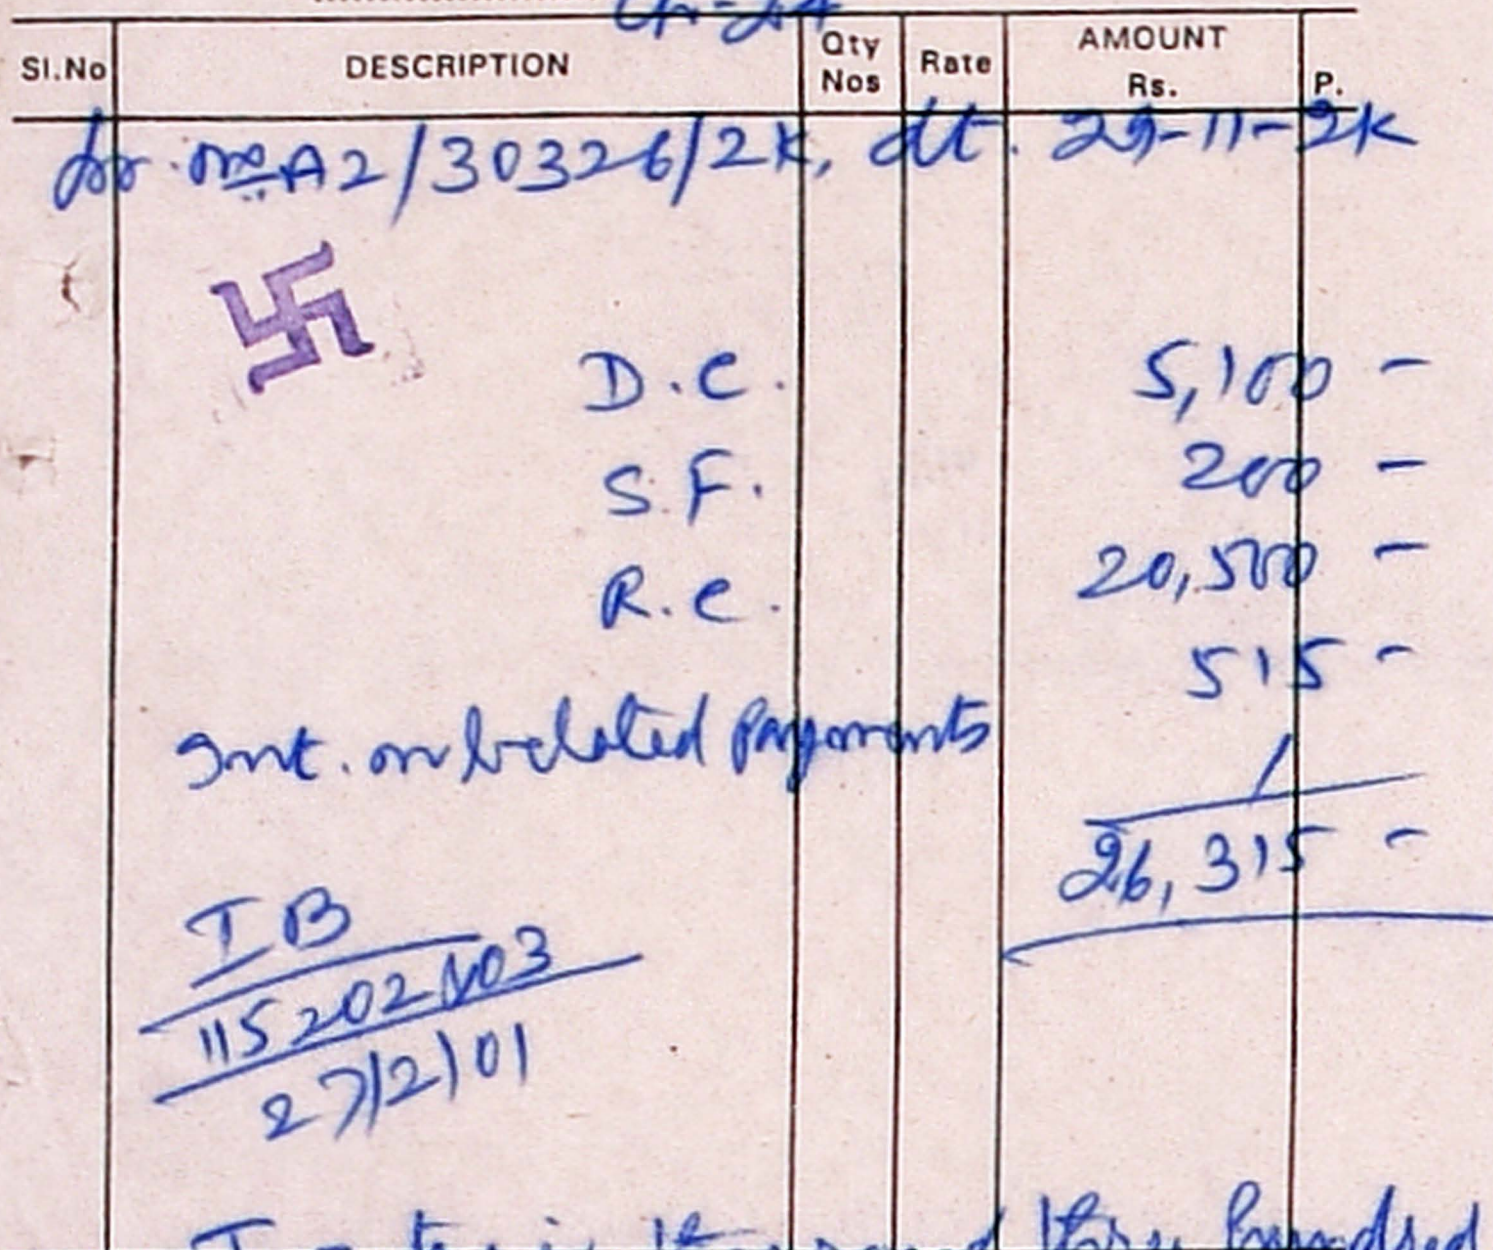 Ch-24
Sl.No DESCRIPTION Qty Nos Rate AMOUNT Rs. P.
Lr. no A2/30326/2K, dt. 29-11-2K
D.C. 5,100 -
S.F. 200 -
R.C. 20,500 -
515 -
Int. on belated Payments /
26,315 -
IB
115202
03
27/2/01
thousand three hundred